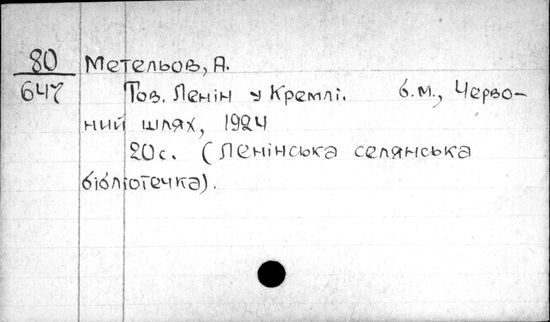 80 Метельов, А.
647 Тов. Ленін у Кремлі. б.м., Черво-
ний шлях, 1924
20с. (Ленінська селянська
бібліотечка).